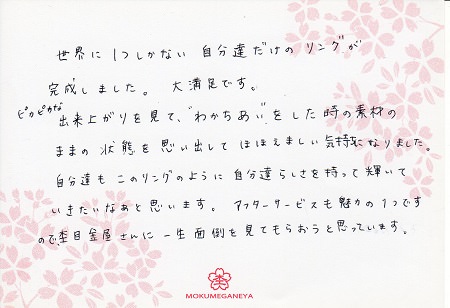 世界に1つしかない 自分達だけの リングが
完成しました。 大満足です。
ピカピカな
出来上がりを見て、"わかちあい"をした時の素材の
ままの 状態を思い出して ほほえましい気持になりました。
自分達も このリングのように 自分達らしさを持って輝いて
いきたいなあと思います。 アフターサービスも魅力の1つです
ので、杢目金屋さんに 一生面倒を見てもらおうと思っています。
MOKUMEGANEYA